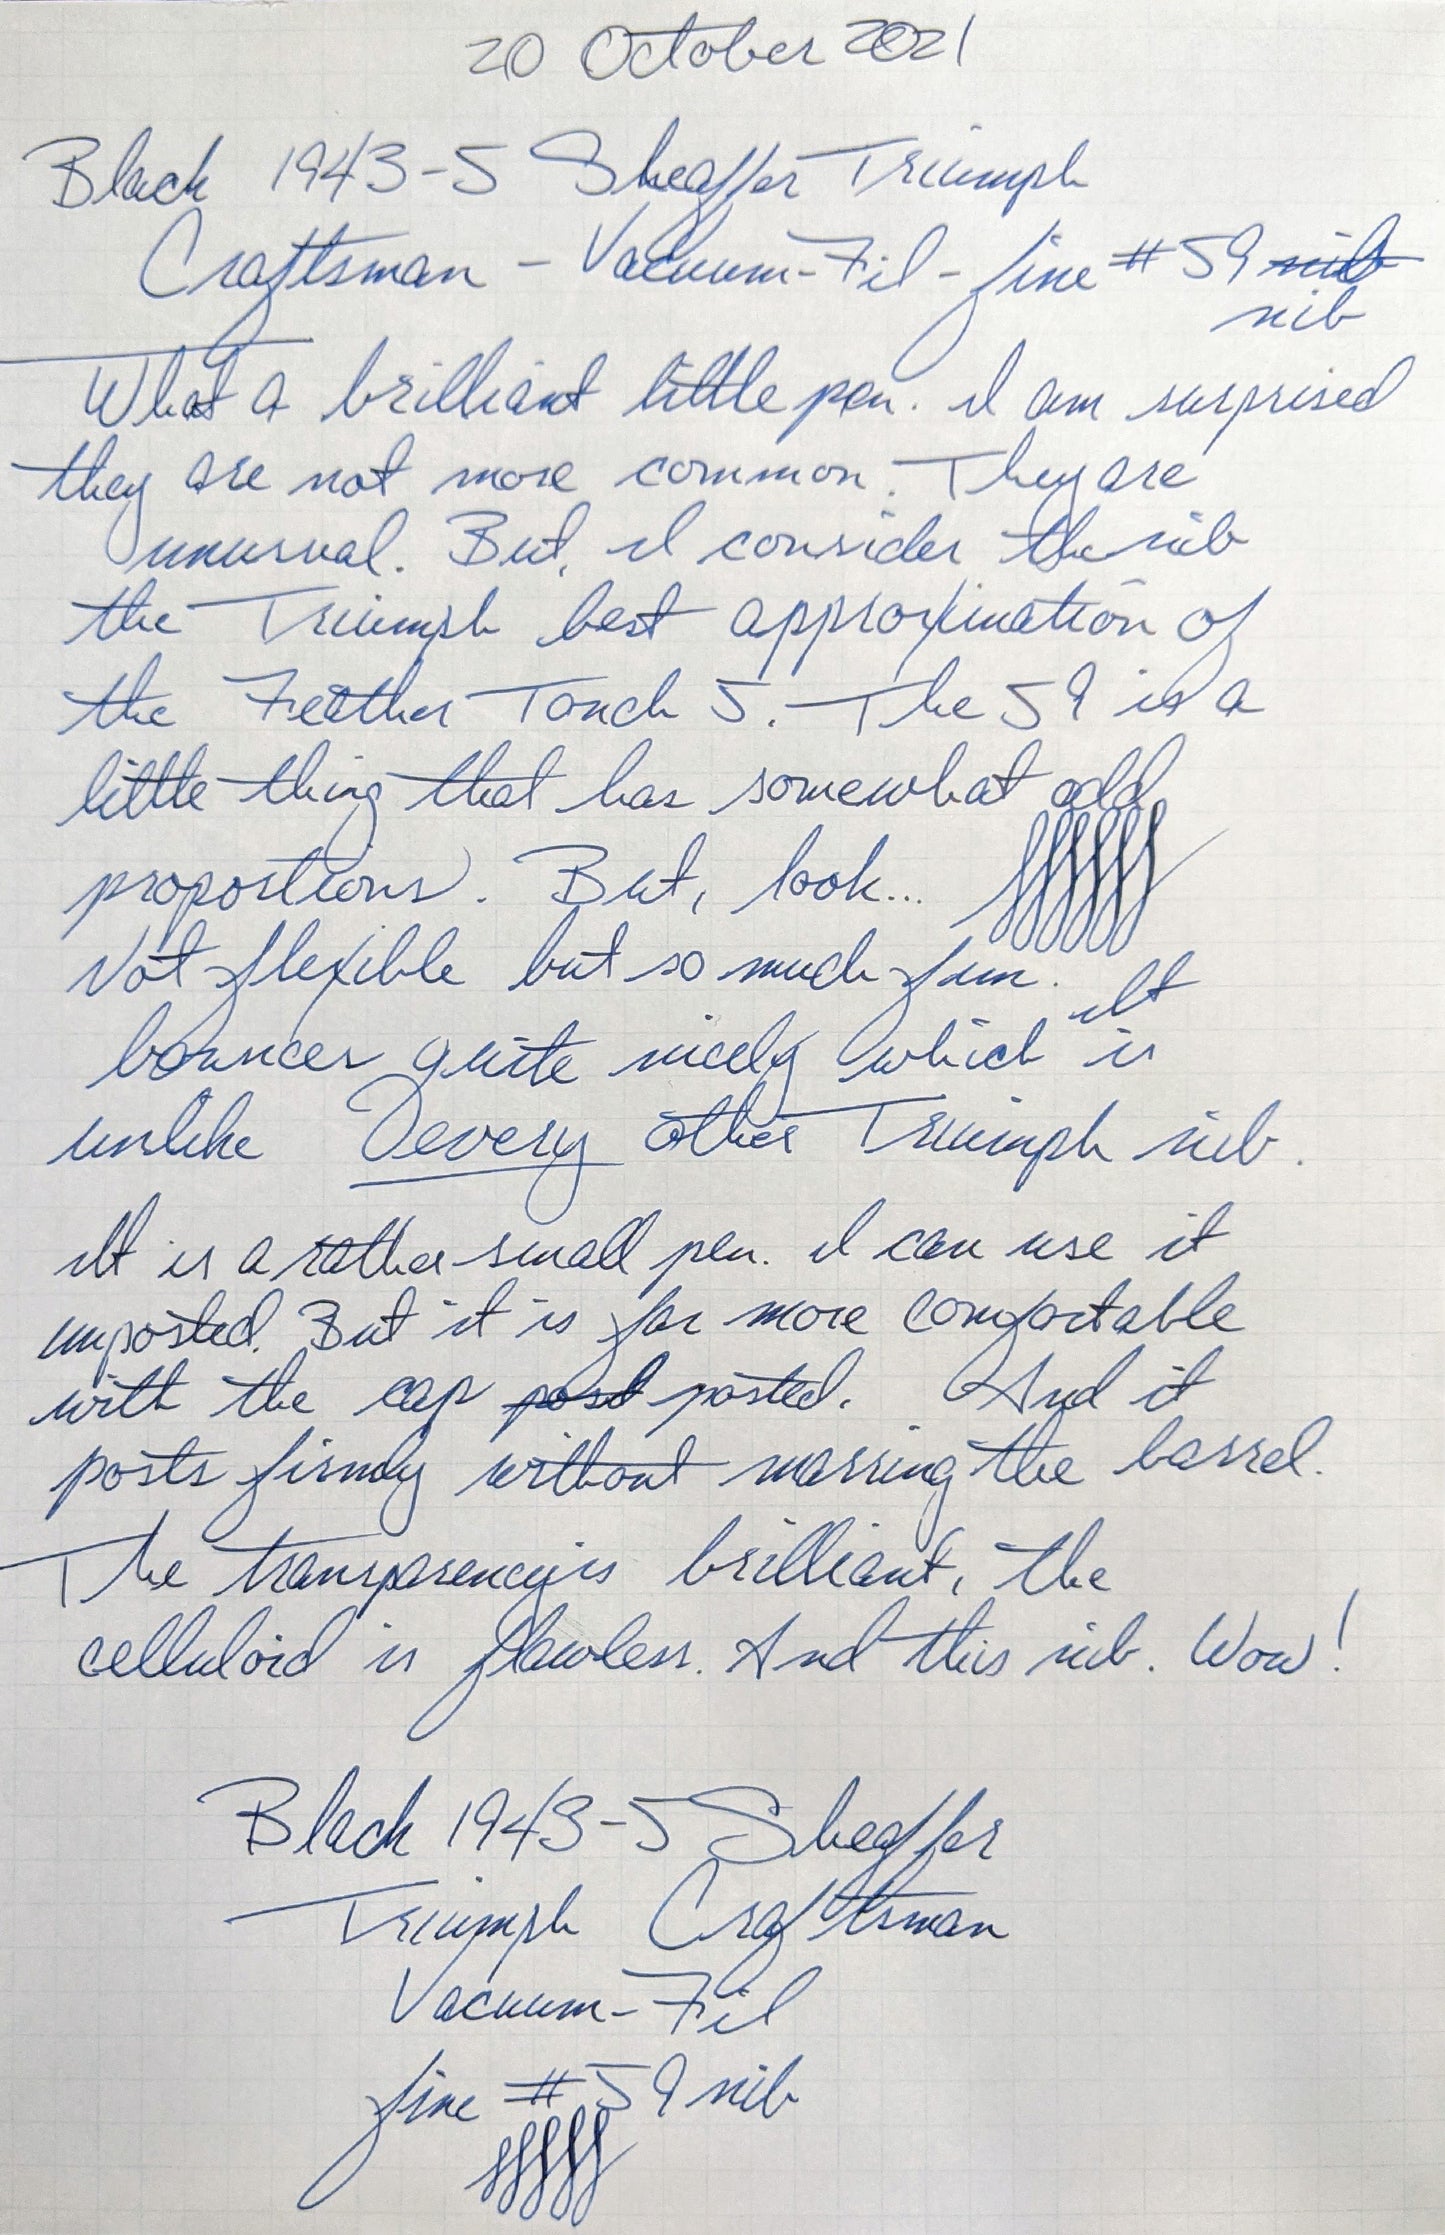 20 October 2021
Black 1943-5 Sheaffer Triumph
Craftsman - Vacuum-Fil - fine #59 nib
nib
What a brilliant little pen. I am surprised
they are not more common. They are
unusual. But, I consider the nib
the Triumph best approximation of
the Feather Touch 5. The 59 is a
little thing that has somewhat odd
proportions. But, look...
Not flexible but so much fun. It
bounces quite nicely which is
unlike every other Triumph nib.
It is a rather small pen. I can use it
unposted. But it is far more comfortable
with the cap post posted. And it
posts firmly without marring the barrel.
The transparency is brilliant, the
celluloid is flawless. And this nib. Wow!
Black 1943-5 Sheaffer
Triumph Craftsman
Vacuum-Fil
fine #59 nib